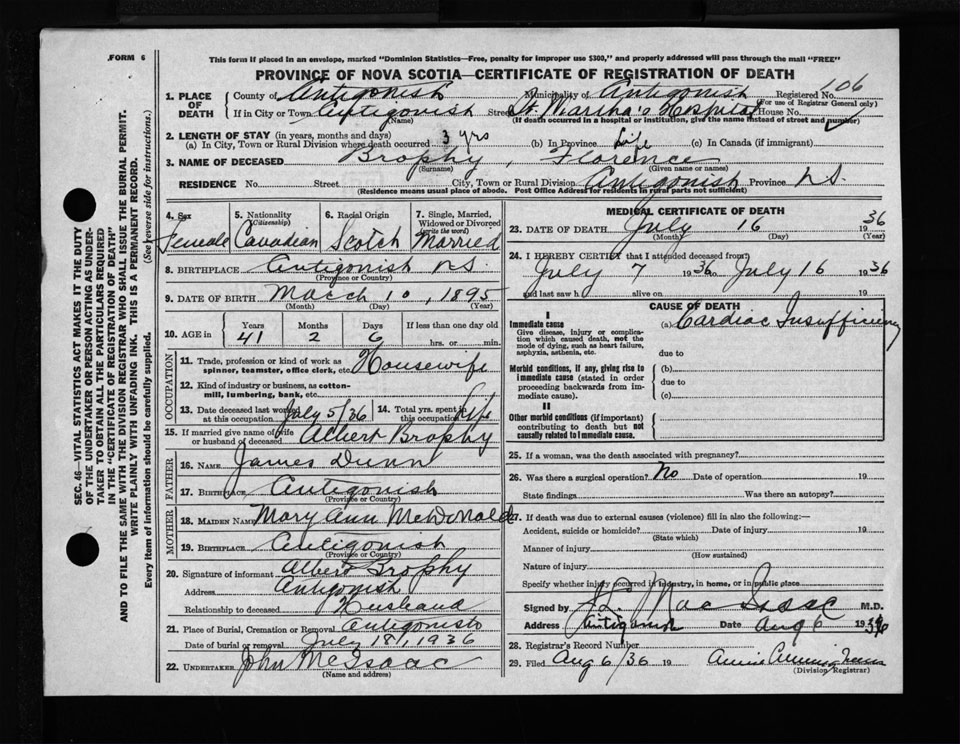 FORM 6
This form if placed in an envelope, marked "Dominion Statistics—Free, penalty for improper use $300," and properly addressed will pass through the mail "FREE"
PROVINCE OF NOVA SCOTIA—CERTIFICATE OF REGISTRATION OF DEATH
SEC. 46—VITAL STATISTICS ACT MAKES IT THE DUTY
OF THE UNDERTAKER OR PERSON ACTING AS UNDER-
TAKER TO OBTAIN ALL THE PARTICULARS REQUIRED
IN THE "CERTIFICATE OF REGISTRATION OF DEATH"
AND TO FILE THE SAME WITH THE DIVISION REGISTRAR WHO SHALL ISSUE THE BURIAL PERMIT.
WRITE PLAINLY WITH UNFADING INK. THIS IS A PERMANENT RECORD.
Every item of information should be carefully supplied. (See reverse side for instructions.)
1. PLACE OF DEATH County of Antigonish Municipality of Antigonish Registered No. 606
(For use of Registrar General only)
If in City or Town Antigonish Street St. Martha's Hospital House No.
(Name) (If death occurred in a hospital or institution, give the name instead of street and number)
2. LENGTH OF STAY (in years, months and days)
(a) In City, Town or Rural Division where death occurred 3 yrs (b) In Province Life (c) In Canada (if immigrant)
3. NAME OF DECEASED Brophy, Florence
(Surname) (Given name or names)
RESIDENCE No. Street City, Town or Rural Division Antigonish Province N.S.
(Residence means usual place of abode. Post Office Address for residents in rural parts not sufficient)
4. Sex Female
5. Nationality (Citizenship) Canadian
6. Racial Origin Scotch
7. Single, Married, Widowed or Divorced (write the word) Married
8. BIRTHPLACE Antigonish N.S.
(Province or Country)
9. DATE OF BIRTH March 10, 1895
(Month) (Day) (Year)
10. AGE in Years 41 Months 2 Days 6 If less than one day old hrs. or min.
OCCUPATION
11. Trade, profession or kind of work as spinner, teamster, office clerk, etc. Housewife
12. Kind of industry or business, as cotton-mill, lumbering, bank, etc.
13. Date deceased last worked at this occupation July 5/36 14. Total yrs. spent in this occupation Life
15. If married give name of wife or husband of deceased Albert Brophy
FATHER
16. NAME James Dunn
17. BIRTHPLACE Antigonish
MOTHER
18. MAIDEN NAME Mary Ann McDonald
19. BIRTHPLACE Antigonish
(Province or Country)
20. Signature of informant Albert Brophy
Address Antigonish
Relationship to deceased Husband
21. Place of Burial, Cremation or Removal Antigonish
Date of burial or removal July 18, 1936
22. UNDERTAKER John McIsaac
(Name and address)
MEDICAL CERTIFICATE OF DEATH
23. DATE OF DEATH July 16 1936
(Month) (Day) (Year)
24. I HEREBY CERTIFY that I attended deceased from:
July 7 1936 to July 16 1936
and last saw h alive on 19
CAUSE OF DEATH
I
Immediate cause (a) Cardiac Insufficiency
Give disease, injury or complica-
tion which caused death, not the
mode of dying, such as heart failure,
asphyxia, asthenia, etc. due to
Morbid conditions, if any, giving rise to (b)
immediate cause (stated in order due to
proceeding backwards from im-
mediate cause). (c)
II
Other morbid conditions (if important)
contributing to death but not
causally related to immediate cause.
25. If a woman, was the death associated with pregnancy?
26. Was there a surgical operation? No Date of operation 19
State findings Was there an autopsy?
27. If death was due to external causes (violence) fill in also the following:—
Accident, suicide or homicide? Date of injury 19
(State which)
Manner of injury
(How sustained)
Nature of injury
Specify whether injury occurred in industry, in home, or in public place
Signed by MacIsaac M.D.
Address Antigonish Date Aug 6 1936
28. Registrar's Record Number
29. Filed Aug 6/36 19
(Division Registrar)